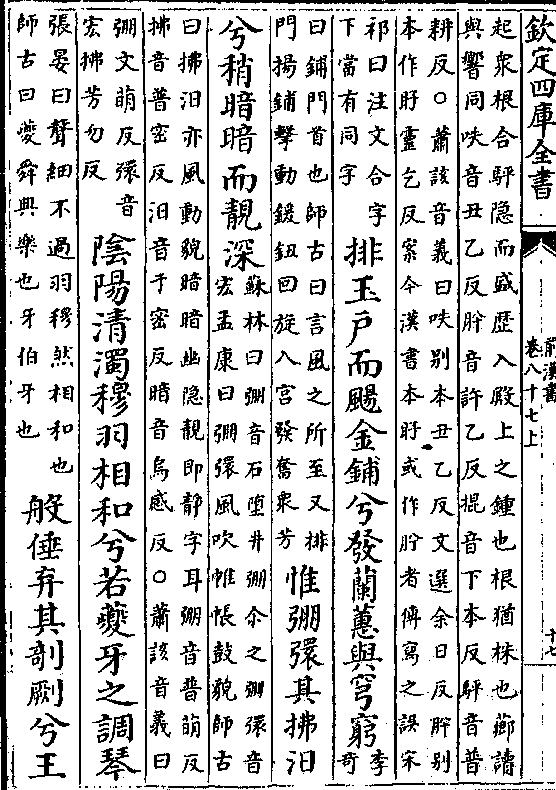 欽定四庫全書
前漢書
卷八十七上
十七
起衆根合駍隐而盛歴入殿上之鍾也根猶株也薌讀
與響同呹音丑乙反肸音許乙反掍音下本反駍音普
耕反○蕭該音義曰呹别本丑乙反文選余日反肸别
本作盱靈乞反案今漢書本盱或作貯者傳寫之誤宋
祁曰注文合字
下當有同字
排玉戶而颺金鋪兮發蘭蕙與穹窮
李
竒
曰鋪門首也師古曰言風之所至又排
門揚鋪擊動鍰鈕回旋入宫發奮衆芳
惟弸彋其拂汨
兮稍暗暗而靚深
蘇林曰弸音石墮井弸尒之弸彋音
宏孟康曰弸彋風吹帷帳鼓貌師古
曰拂汨亦風動貌暗暗幽隐靚即靜字耳弸音普萌反
拂音普密反汨音于密反暗音烏感反○蕭該音義曰
弸文萌反彋音
宏拂芳勿反
陰陽清濁穆羽相和兮若夔牙之調琴
張晏曰聲細不過羽穆然相和也
師古曰夔舜典樂也牙伯牙也
般倕弃其剞劂兮王